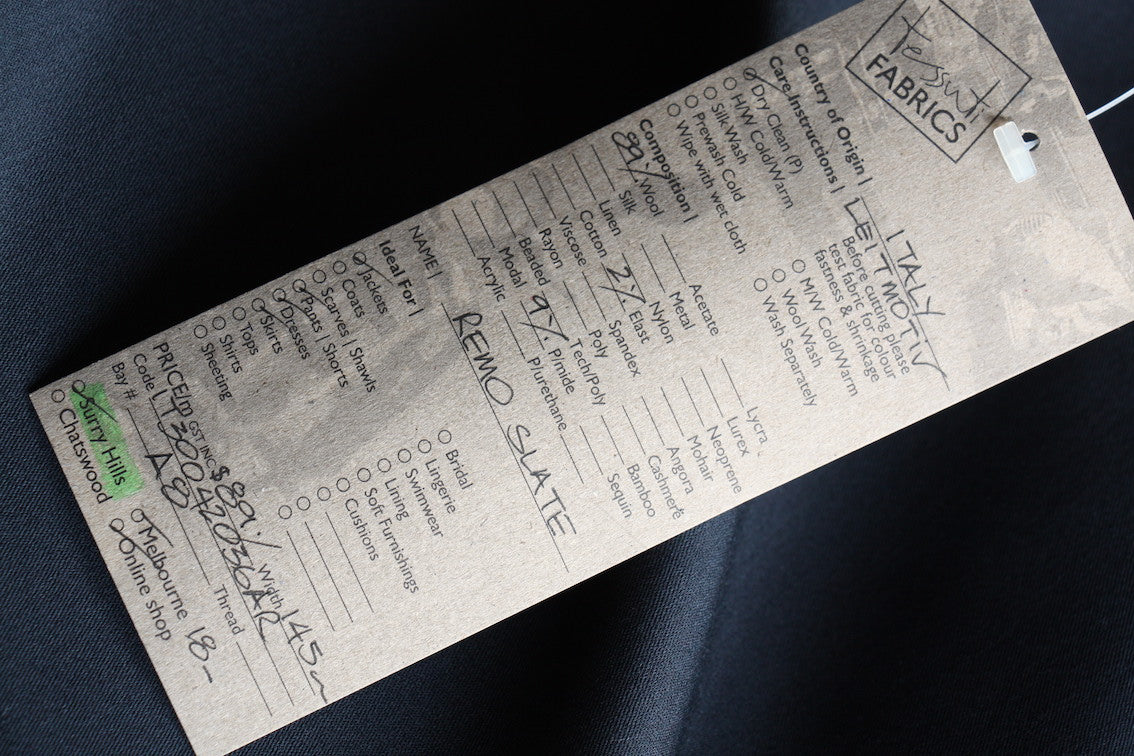 tessuti
FABRICS
Country of Origin | ITALY
Care Instructions | LEITMOTIV
Before cutting please
test fabric for colour
fastness & shrinkage
Dry Clean (P)
H/W Cold/Warm
Silk Wash
Prewash Cold
Wipe with wet cloth
M/W Cold/Warm
Wool Wash
Wash Separately
Composition |
89% Wool
Silk
Linen
Cotton
Viscose
Rayon
Beaded
Modal
Acrylic
Acetate
Metal
Nylon
2% Elast
Spandex
Poly
Tech/Poly
9% P/mide
P/urethane
Lycra
Lurex
Neoprene
Mohair
Angora
Cashmere
Bamboo
Sequin
NAME | REMO SLATE
Ideal For |
Jackets
Coats
Scarves | Shawls
Pants | Shorts
Dresses
Skirts
Tops
Shirts
Sheeting
Bridal
Lingerie
Swimwear
Lining
Soft Furnishings
Cushions
PRICE/m GST INC $89 / Width 145
Code
Bay # A8 Thread
Surry Hills
Chatswood
Melbourne 18-
Online shop